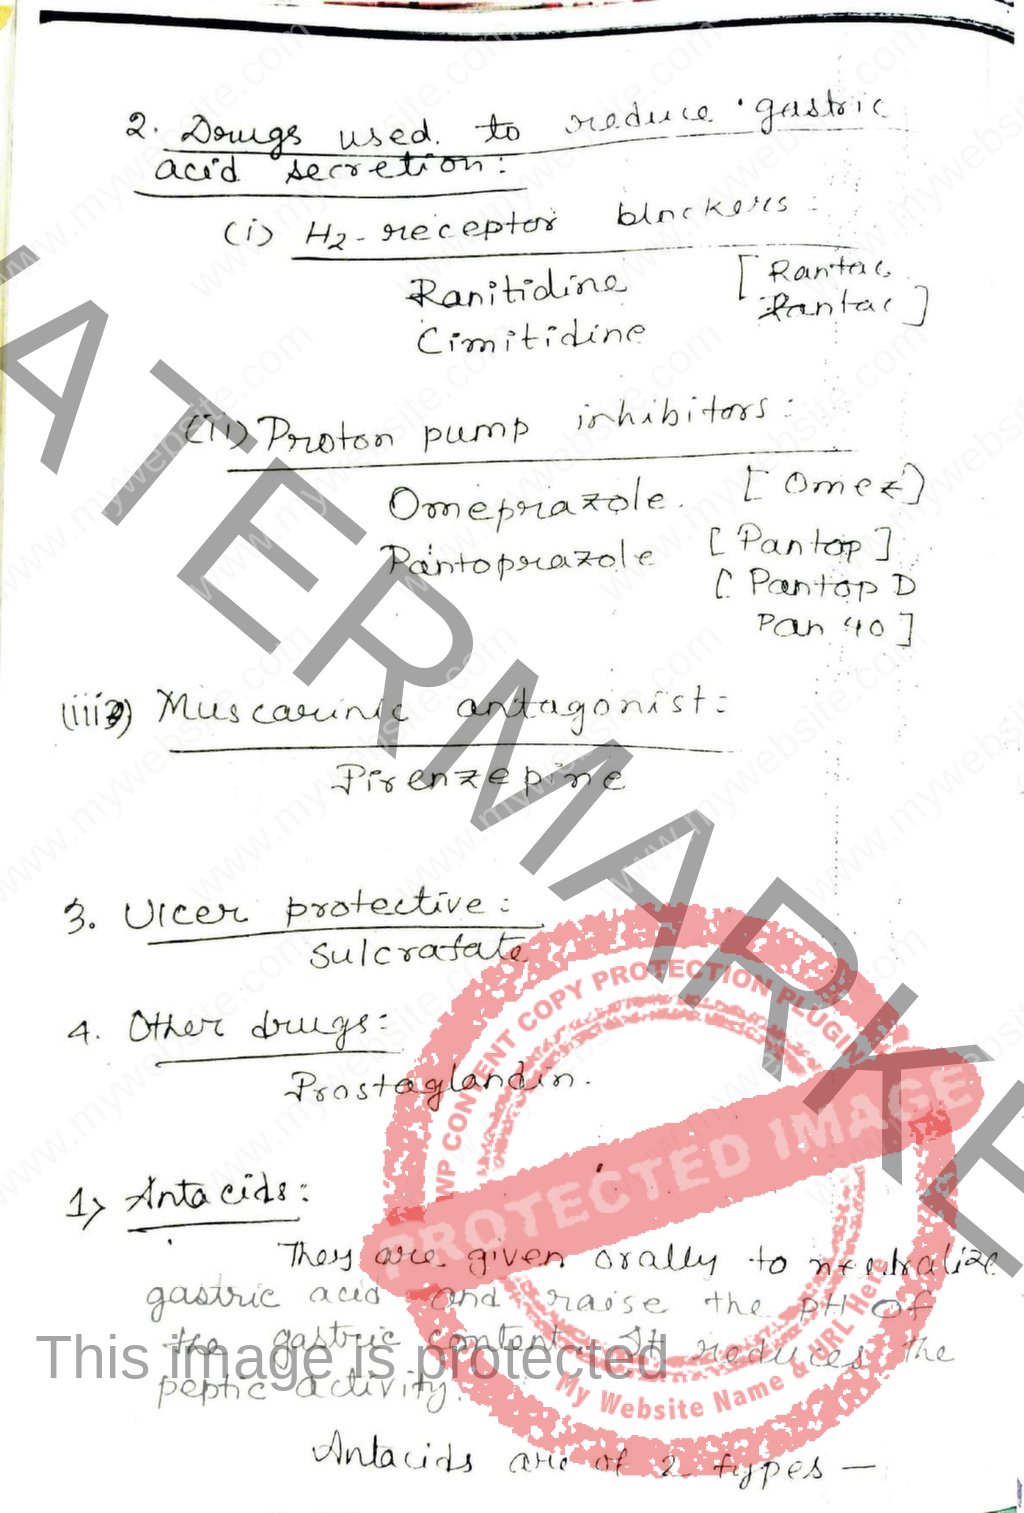 2. Drugs used to reduce gastric
acid secretion:
(i) H2-receptor blockers:
Ranitidine [Rantac
Cimitidine Zantac]
(ii) Proton pump inhibitors:
Omeprazole. [Omez]
Pantoprazole [Pantop]
[Pantop D
Pan 40]
(iii) Muscarinic antagonist:
Pirenzepine
3. Ulcer protective:
Sulcrafate
4. Other drugs:
Prostaglandin.
1) Antacids:
They are given orally to neutralize
gastric acid and raise the pH of
the gastric content. It reduces the
peptic activity.
Antacids are of 2 types —
WATERMARKED
This image is protected
WP CONTENT COPY PROTECTION PLUGIN
PROTECTED IMAGE
My Website Name & URL Here
www.mywebsite.com